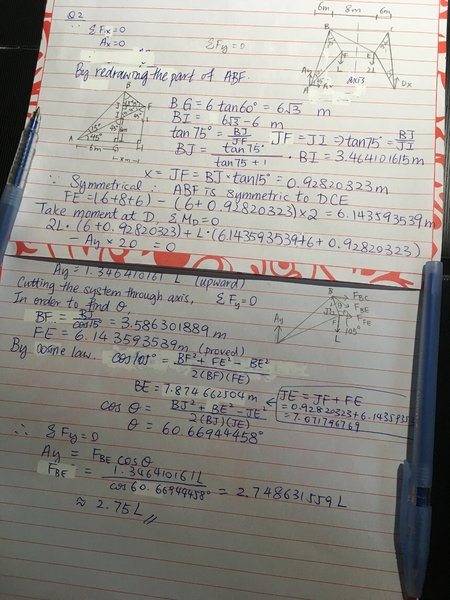 Q2
∵ ΣFx=0
Ax=0
ΣFy=0
6m 8m 6m
By redrawing the part of ABF.
BG = 6 tan60° = 6√3 m
BI = 6√3-6 m
tan75° = BJ/JF JF = JI ⇒ tan75° = BJ/JI
BJ = tan75°/(tan75°+1) · BI = 3.464101615 m
x = JF = BJ × tan15° = 0.92820323 m
∵ Symmetrical ∴ ABF is symmetric to DCE
FE = (6+8+6) - (6+0.92820323)×2 = 6.143593539 m
Take moment at D, ΣMD=0
2L·(6+0.92820323)+L·(6.143593539+6+0.92820323)
- Ay×20 = 0
Ay = 1.346410161 L (upward)
Cutting the system through axis, ΣFy=0
In order to find θ,
BF = BJ/cos15° = 3.586301889 m
FE = 6.143593539 m (proved)
By cosine law. cos105° = (BF²+FE²-BE²)/(2(BF)(FE))
BE = 7.874662504 m
JE = JF + FE
= 0.92820323+6.143593539
= 7.071796769
cosθ = (BJ²+BE²-JE²)/(2(BJ)(JE))
θ = 60.66944458°
∴ ΣFy=0
Ay = FBE cosθ
FBE = 1.346410161L/cos60.66944458° = 2.748631559 L
≈ 2.75L